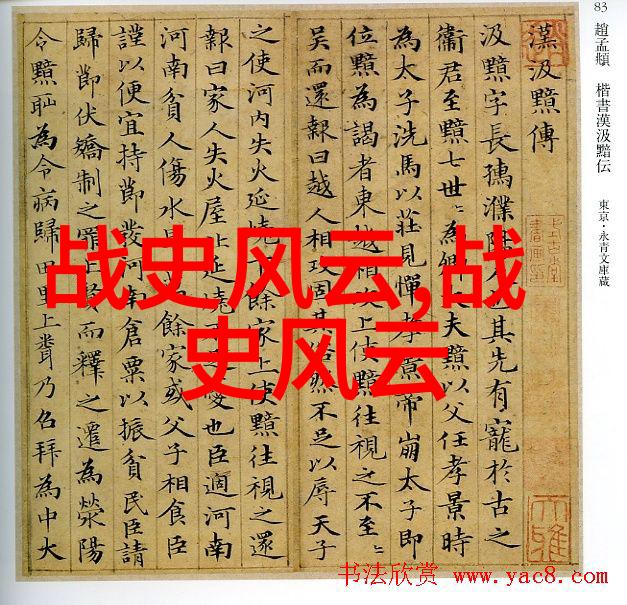 战史风云,战
史风云
83
趙孟頫 楷書漢汲黯伝
東京・永青文庫蔵
漢汲黯傳
汲黯字長孺濮人其先有寵於古之
衛君至黯七世=為卿夫黯以父任孝景時
為太子洗馬以莊見憚孝景帝崩太子即
位黯為謁者東越相攻上使黯往視之不至=
吳而還報曰越人相攻固其俗然不足以辱天子
之使河内失火延燒餘家上使黯往視之還
報曰家人失火屋比延燒憂也臣適河南
河南貧人傷水餘家或父子相食臣
謹以便宜持節發河南倉粟以振貧民臣請
歸節伏矯制之罪上賢而釋之遷為滎陽
令黯恥為令病歸田里上聞乃召拜為中大
书法欣赏 www.yac8.com